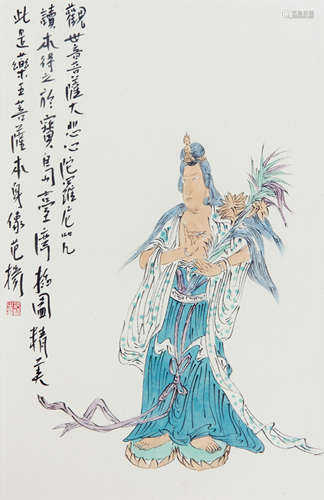 觀世音菩薩大悲心陀羅尼咒
讀本得之於寶島臺灣插圖精美
此是藥王菩薩本身像范揚